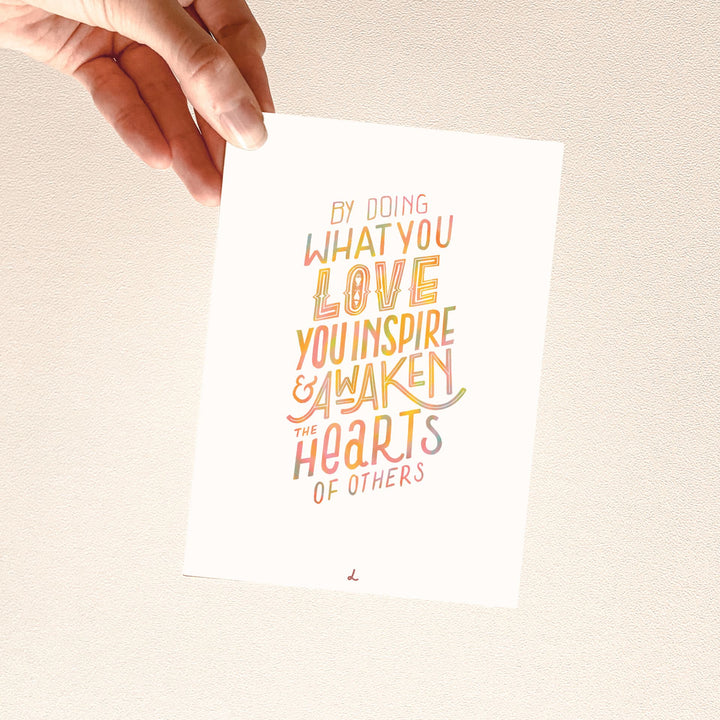 BY DOING
WHAT YOU
LOVE
YOU INSPIRE
& AWAKEN
THE
HeaRTS
OF OTHERS